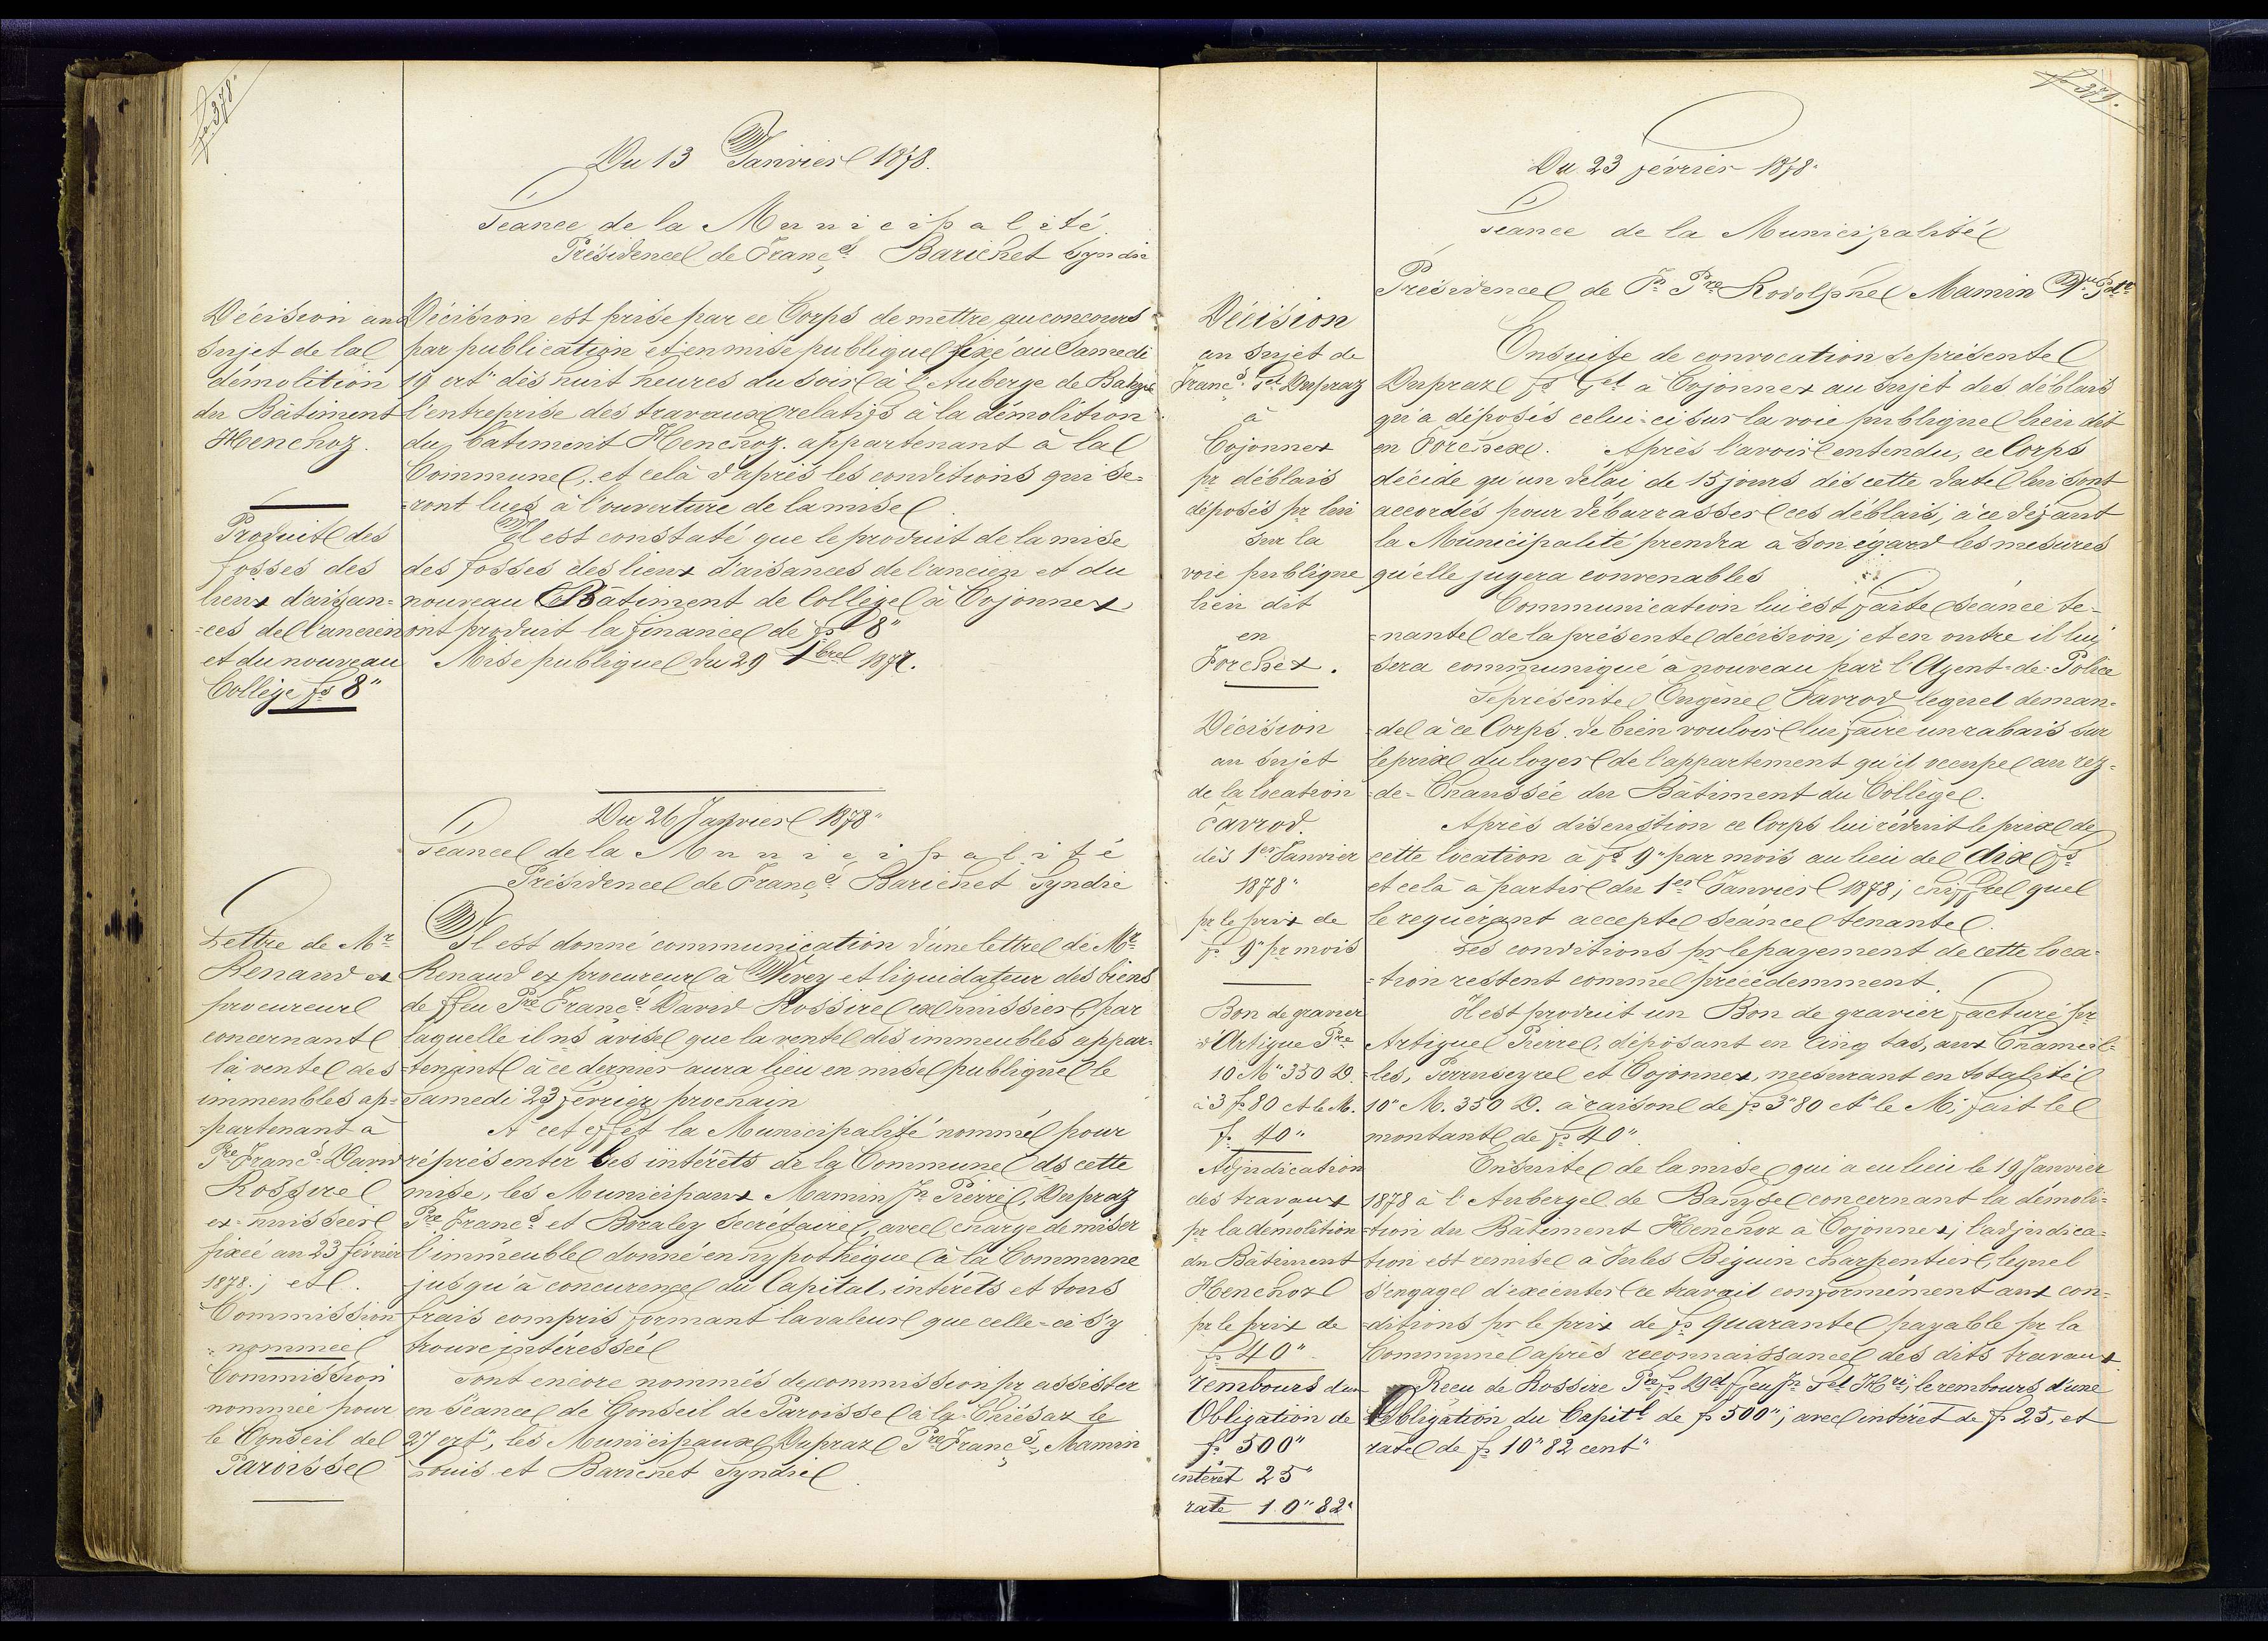 fo 378"
Du 13 Janvier 1878.
Séance de la Municipalité
Présidence de Franç.s Barichet Syndic
Décision au
sujet de la
démolition
du Bâtiment
Henchoz.
Décision est prise par ce Corps de mettre au concours
par publication et en mise publique fixé au Samedi
19 crt" dès huit heures du soir à l'Auberge de Bahyse
l'entreprise des travaux relatifs à la démolition
du bâtiment Henchoz. appartenant à la
Commune, et celà d'après les conditions qui se-
=ront lues à l'ouverture de la mise
Produit des
fosses des
lieux d'aisan=
=ces de l'ancien
et du nouveau
Collège fs 8"
Il est constaté que le produit de la mise
des fosses des lieux d'aisances de l'ancien et du
nouveau Batiment de Collège à Cojonnex,
ont produit la finance de fs 8"
Mise publique du 29 1877.
Du 26 Janvier 1878"
Séance de la Municipalité
Présidence de Franç.s Barichet Syndic
Lettre de Mr
Renaud ex
procureur
concernant
la vente des
immeubles ap=
=partenant à
Pre Franc.s David
Rossire
ex=huissier
fixée au 23 février
1878.; et
Commission
nommée
Il est donné communication d'une lettre de Mr
Renaud ex procureur à Vevey et liquidateur des biens
de ffeu Pre Franç.s David Rossire ex huissier par
laquelle il ns avise que la vente des immeubles appar=
=tenant à ce dernier aura lieu en mise publique le
Samedi 23 février prochain
A cet effet la Municipalité nomme pour
réprésenter les intérêts de la Commune ds cette
mise, les Municipaux Mamin Jn Pierre, Dupraz
Pre Franc.s et Boraley secrétaire, avec charge de miser
l'immeuble donné en hypothèque à la Commune
jusqu'à concurence du Capital, intérêts et tous
frais compris formant la valeur que celle=ci s'y
trouve intéressée
Commission
nommée pour
le Conseil de
Paroisse
Sont encore nommés de commission pr assister
en Séance de Conseil de Paroisse à la Chiésaz le
27 crt", les Municipaux Dupraz Pre Franç.s, Mamin
Louis et Barichet Syndic
fo 379.
Du 23 février 1878"
Séance de la Municipalité
Présidence de Jn Pre Rodolphe Mamin
Décision
au sujet de
Franç.s Sel Dupraz
à
Cojonnex
pr déblais
déposés pr lui
sur la
voie publique
lieu dit
en
Forchex.
Ensuite de convocation se présente
Dupraz fs Sel à Cojonnex au sujet des déblais
qu'a déposés celui=ci sur la voie publique lieu dit
en Forchex. Après l'avoir entendu, ce Corps
décide qu'un délai de 15 jours dès cette date lui sont
accordés pour débarrasser ces déblais; à ce défaut
la Municipalité prendra à son egard les mesures
qu'elle jugera convenables
Communication lui est faite séance te-
=nante de la présente décision; et en outre il lui
sera communiqué à nouveau par l'Agent=de=Police
Décision
au sujet
de la location
Favrod.
dès 1er Janvier
1878"
pr le prix de
fs 9" pr mois
Se présente Eugène Favrod lequel deman-
=de à ce Corps de bien vouloir lui faire un rabais sur
le prix du loyer de l'appartement qu'il occupe au rez=
=de=Chaussée du Bâtiment du Collège.
Après discustion ce Corps lui réduit le prix de
cette location à fs 9" par mois au lieu de dix fs
et celà à partir du 1er Janvier 1878; chiffre que
le requérant accepte séance tenante.
Les conditions pr le payement de cette loca=
=tion restent comme précédemment.
Bon de gravier
d'Artigue Pre
10 M" 350 D.
à 3 fs 80 ct le M.
f. 40"
Il est produit un Bon de gravier facturé pr
Artigue Pierre, déposant en cinq tas, aux Chameil=
=les, Perruseyre et Cojonnex, mesurant en totalité
10" M. 350 D. à raison de fs 3"80 ct" le M; fait le
montant de fs 40".
Adjudication
des travaux
pr la démolition
du Bâtiment
Henchoz
pr le prix de
fs 40"
Ensuite de la mise qui a eu lieu le 19 Janvier
1878 à l'Auberge de Bahyse concernant la démoli=
=tion du Bâtiment Henchoz à Cojonnex; l'adjudica=
tion est remise à Jules Béguin charpentier, lequel
s'engage d'exécuter ce travail conformément aux con=
=ditions pr le prix de fs quarante payable pr la
Commune après reconnaissance des dits travaux
rembours d'une
Obligation de
fs 500"
intérêt 25"
rate 10"82"
Recu de Rossire Pre fs Dd ffeu Jn Sel Hri, le rembours d'une
Obligation du Capitl de fs 500"; avec intérêt de fs 25, et
rate de fs 10"82 cent"